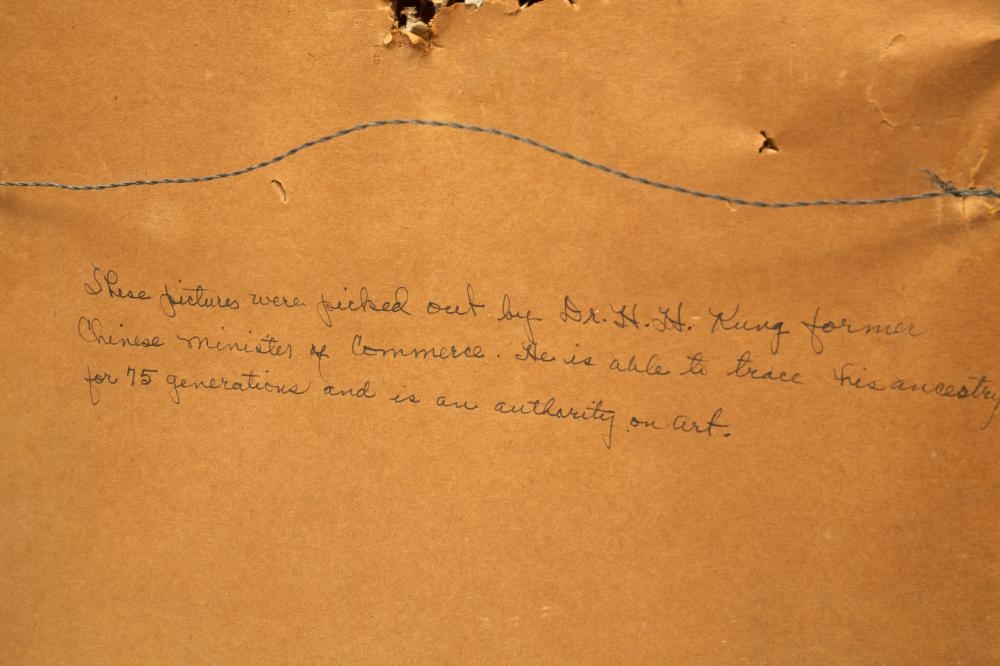 These pictures were picked out by Dr. H. H. Kung former
Chinese Minister of Commerce. He is able to trace his ancestry
for 75 generations and is an authority on art.